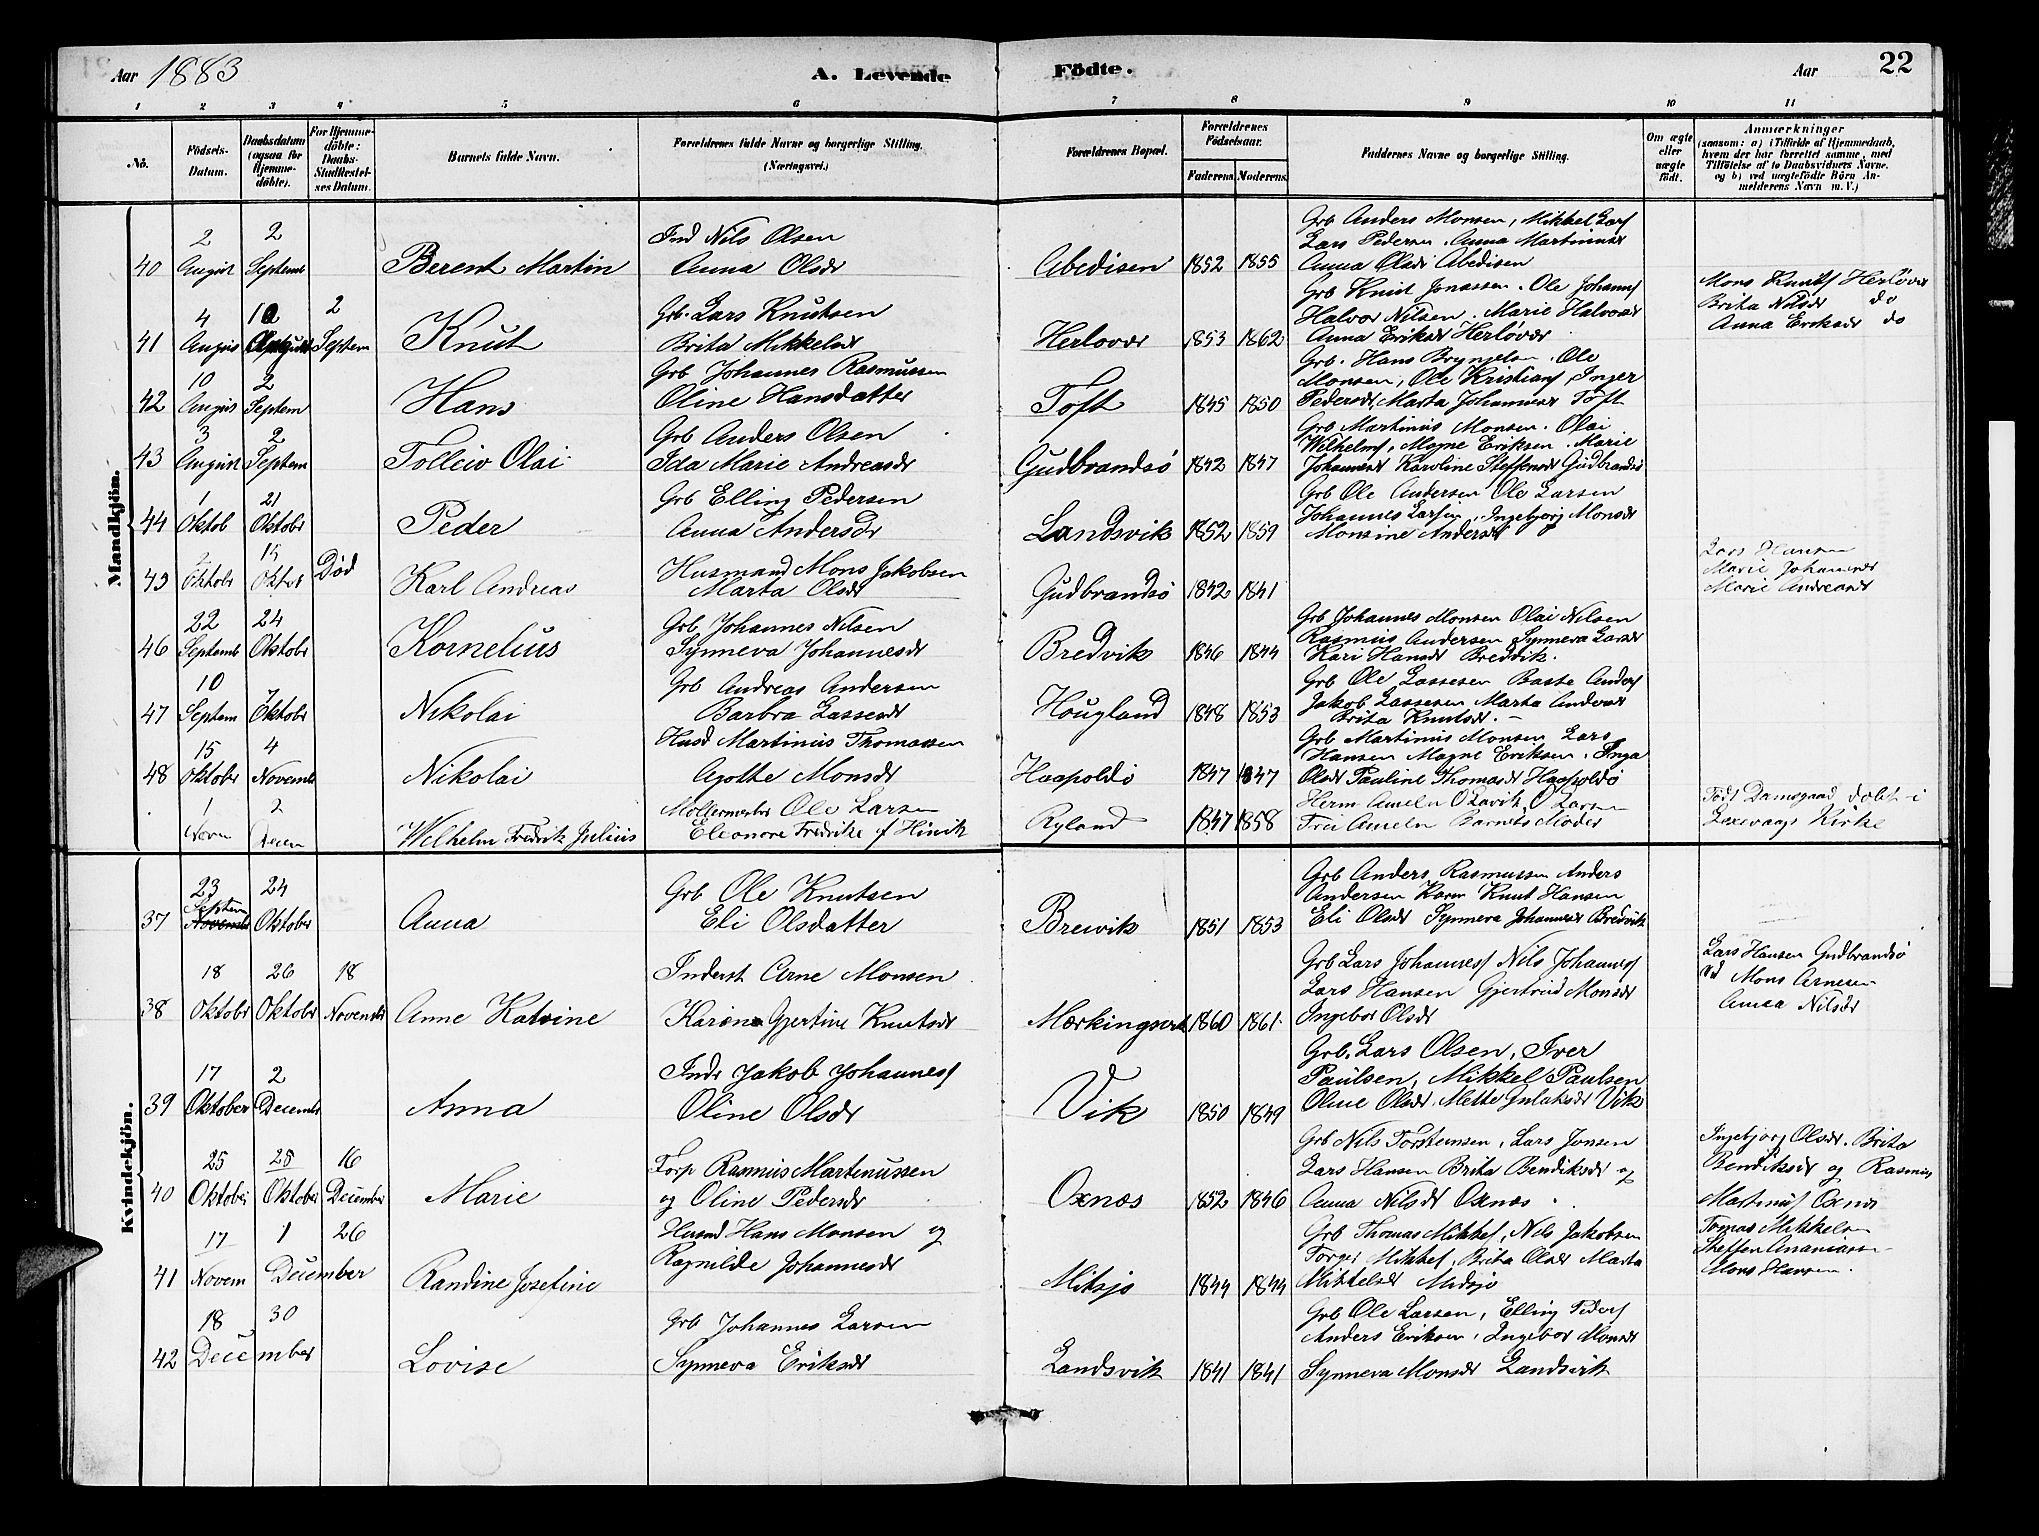 Aar 1883
A. Levende
Födte.
Aar
22
1 2 3 4 5 6 7 8 9 10 11
No.
Födsels-Datum.
Daabsdatum (ogsaa for Hjemme-döbte).
For Hjemme-döbte: Daabs-Stadfæstel-ses Datum.
Barnets fulde Navn.
Forældrenes fulde Navne og borgerlige Stilling. (Næringsvei.)
Forældrenes Bopæl.
Forældrenes Födselsaar.
Faderens. Moderens.
Faddernes Navne og borgerlige Stilling.
Om ægte eller uægte födt.
Anmærkninger
(saasom: a) i Tilfælde af Hjemmedaab,
hvem der har forrettet samme, med
Tilföielse af to Daabsvidners Navne.
og b) ved uægtefödte Börn An-
melderens Navn m. V.)
Mandkjön.
40 2 August 2 Septemb Berent Martin
Ind Nils Olsen
Anna Olsdr
Abedisen 1852 1855
Grb Anders Monsen, Mikkel Lars
Lars Pedersen. Anna Martinusdr
Anna Olsdr Abedisen
41 4 August 12 August 2 Septem Knut
Grb. Lars Knutsen
Brita Mikkelsdr
Herlovær 1853 1862
Grb Knut Jonassen. Ole Johans
Halvor Nilsen. Marie Halvorsdr
Anna Eriksdr Herløvær
Mons Knuts Herløvær
Brita Nilsdr do
Anna Eriksdr do
42 10 August 2 Septem Hans
Grb Johannes Rasmussen
Oline Hansdatter
Toft 1845 1850
Grb. Hans Brynjelsn. Ole
Monsen, Ole Kristians, Inger
Pedersdr, Marta Johannesdr Toft
43 3 August 2 Septem Tolleiv Olai
Grb Anders Olsen
Ida Marie Andreasdr
Gudbrandsö 1842 1847
Grb Martinus Monsen. Olai
Wilhelms, Mogne Eriksen. Marie
Johannesdr Karoline Steffensdr Gudbrandsö
44 1 Oktob 21 Oktobr Peder
Grb Elling Pedersen
Anna Andersdr
Landsvik 1852 1859
Grb Ole Andersen Ole Larsen
Johannes Larsen, Ingebjorg Monsdr
Monsine Andersdr
45 2 Oktobr 15 Oktobr Død Karl Andreas
Husmand Mons Jakobsen
Marta Olsdr
Gudbrandsö 1842 1841
Lars Hansen
Marie Johannesdr
Marie Andreasdr
46 22 Septemb 24 Oktobr Kornelius
Grb Johannes Nilsen
Synneva Johannesdr
Bredvik 1846 1844
Grb Johannes Monsen Olai Nilsen
Rasmus Andersen Synneva Larsdr
Kari Hansdr Bredvik.
47 10 Septem 7 Oktobr Nikolai
Grb Andreas Andersen
Barbra Lassesdr
Hougland 1848 1853
Grb Ole Lassesen Baste Anders
Jakob Lassesen Marta Andersdr
Brita Knutsdr.
48 15 Oktober 4 Novembr Nikolai
Husd Martinus Thomassen
Agothe Monsdr
Haapoldö 1847 1847
Grb Martinus Monsen Lars
Hansen Mogne Eriksen. Inga
Olsdr Pauline Thomasdr Haapoldö
1 Novem 2 Decem Wilhelm Fredrik Julius
Møllermester Ole Larsen
Eleonore Fredrike f Hinik
Ryland 1847 1858
Herm Ameln O Lavik O Larsen
Frei Ameln Barnets Moder
Födt Damsgaard døbt i
Laxevaags Kirke
Kvindekjön.
37 23 Septem Novembr 24 Oktober Anna
Grb Ole Knutsen
Eli Olsdatter
Breivik 1851 1853
Grb Anders Rasmussen Anders
Andersen Karm Knut Hansen
Eli Olsdr Synneva Johannesdr Bredvik
38 18 Oktobr 26 Oktobr 18 Novembr Anne Katrine
Inderst Arne Monsen
Karen Gjertine Knutsdr
Mærkingsvik 1860 1861
Grb Lars Johannes Nils Johannes
Lars Hansen Gjertrud Monsdr
Ingebor Olsdr
Lars Hansen Gudbrandsö
Vd Mons Arnesen
Anna Nilsdr
39 17 Oktober 2 Decembr Anna
Indr Jakob Johannes
Oline Olsdr
Vik 1850 1849
Grb. Lars Olsen, Iver
Paulsen, Mikkel Paulsen
Oline Olsdr Mette Gulaksdr Vik
40 25 Oktober 28 Oktober 16 December Marie
Forp Rasmus Martinussen
og Oline Pedersdr
Oxnæs 1852 1846
Grb Nils Torstensen, Lars Jonsen
Lars Hansen Brita Bendiksdr og
Anna Nilsdr Oxnæs
Ingebjorg Olsdr. Brita
Bendiksdr og Rasmus
Martinus Oxnæs
41 17 Novem 1 December 26 Randine Josefine
Husmd Hans Monsen og
Ragnilde Johannesdr
Mitsjo 1844 1844
Grb Thomas Mikkel, Nils Jakobsen
Torger Mikkel, Brita Olsdr Marta
Mikkelsdr Midsjo
Tomas Mikkelsn
Steffen Ananiasn
Mons Hansen.
42 18 30 December Lovise
Grb Johannes Larsen
Synneva Eriksdr
Landsvik 1841 1841
Grb Ole Larsen, Elling Peders
Anders Eriksen, Ingebor Monsdr
Synneva Monsdr Landsvik